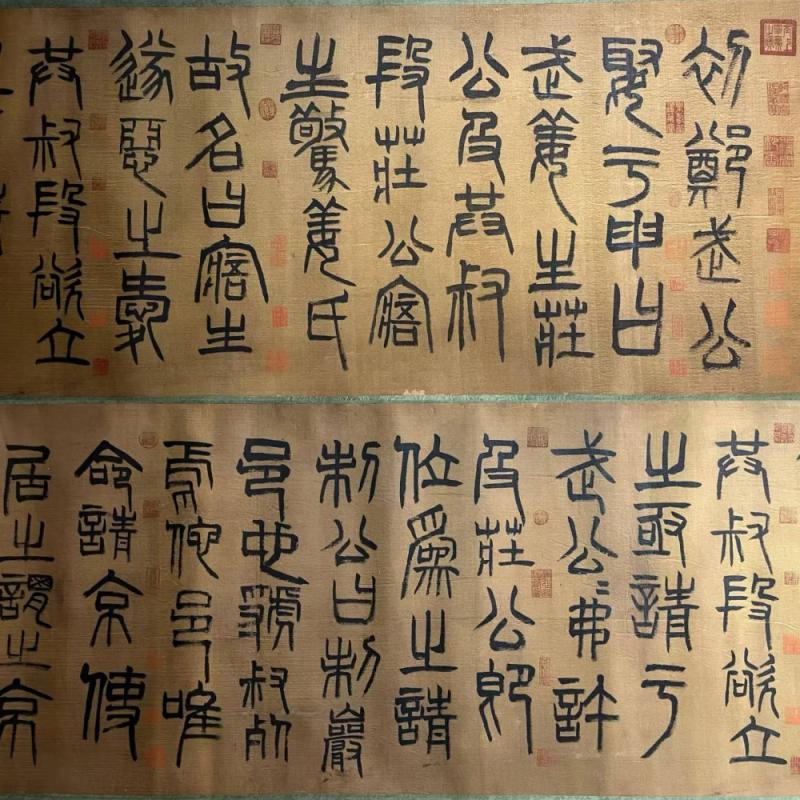 初鄭武公
娶于申曰
武姜生莊
公及共叔
段莊公寤
生驚姜氏
故名曰寤生
遂惡之愛
共叔段欲立
共叔段欲立
之亟請于
武公〻弗許
及莊公即
位爲之請
制公曰制巖
邑也虢叔死
焉佗邑唯
命請京使
居之謂之京